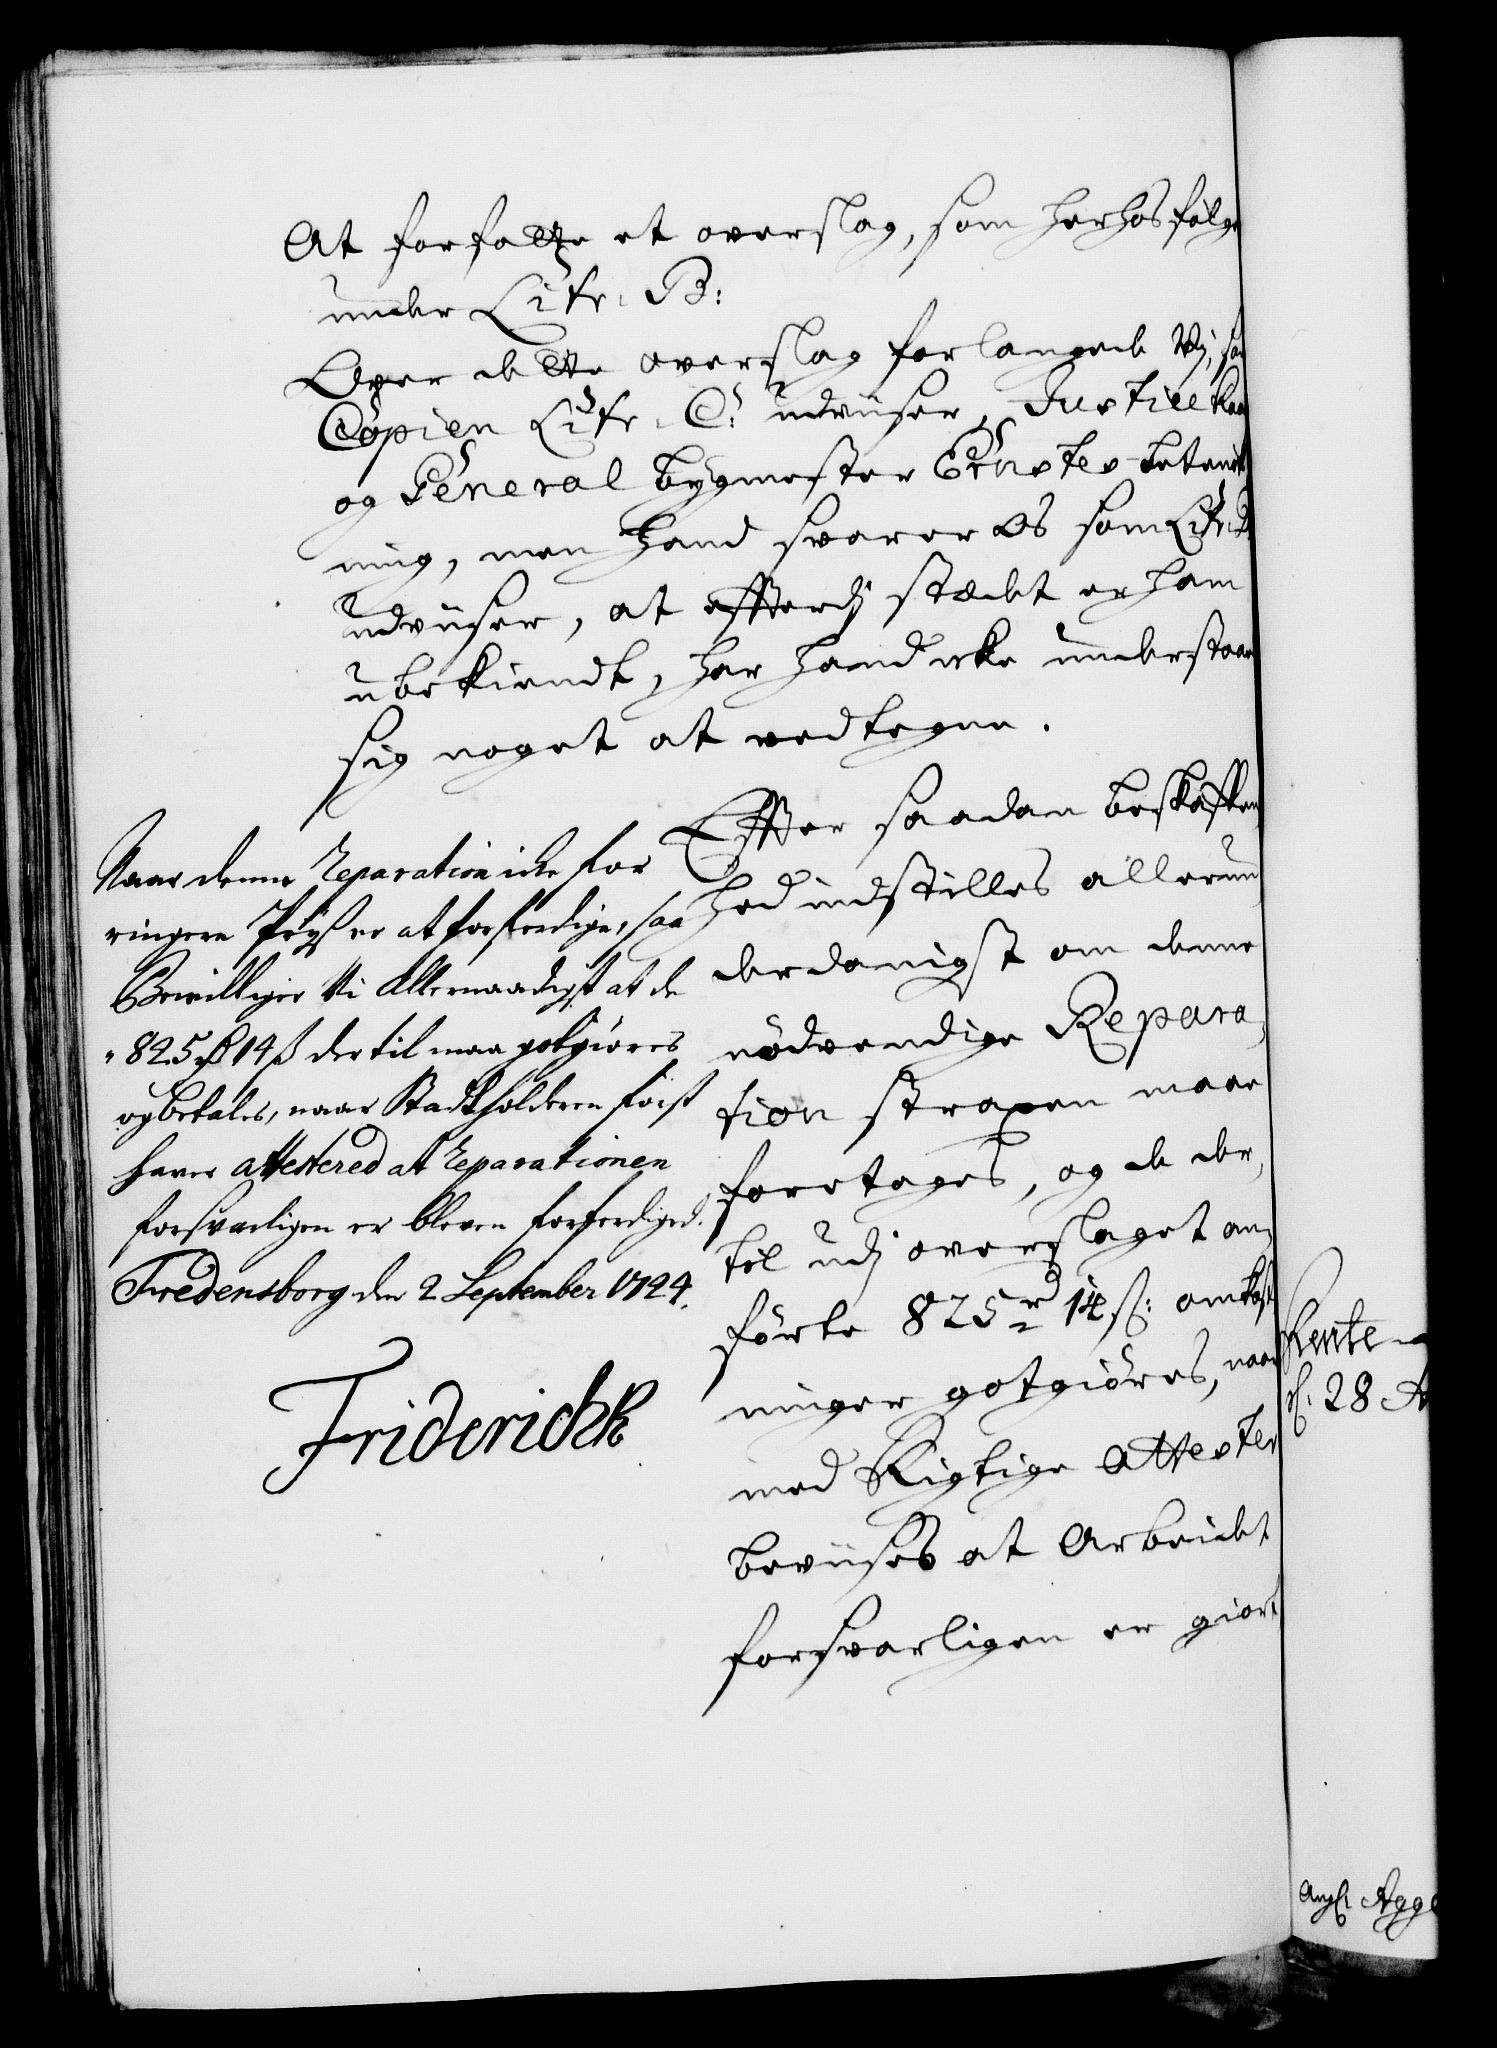 At forfatte et overslag, som herhos følge
under Litr: B:
Over dette overslag forlangede Vj, som
Copien Litr: C: udviiser, Justice Raa
og General bygmester Ernstes betænk
ning, men hand svarer Os som Litr: D
udviiser, at efftterdj stædet er ham
ubekiendt, har hand icke understaae
sig noget at vedtegne.
Effter saadan beskaffen
hed indstilles allerun
derdanigst om denne
nødvendige Repara,
tion straxen maae
foretages, og de der,
til udj overslaget an,
førte 825 rd 14 ß: omkost
ninger gotgiøres, naar
med Rigtige Attester
beviises at Arbeidet
forsvarligen er giort
Naar denne Reparation icke for
ringere Prÿs er at forferdige, saa
Bevilliger Vi Allernaadigst at de
825 rd 14 ß dertil maa gotgiøres
og betales, naar Stadtholderen først
haver attestered at Reparationen
forsvarligen er bleven forferdiged.
Fredensborg den 2 September 1724.
Friderich R
Rente
d. 28 A